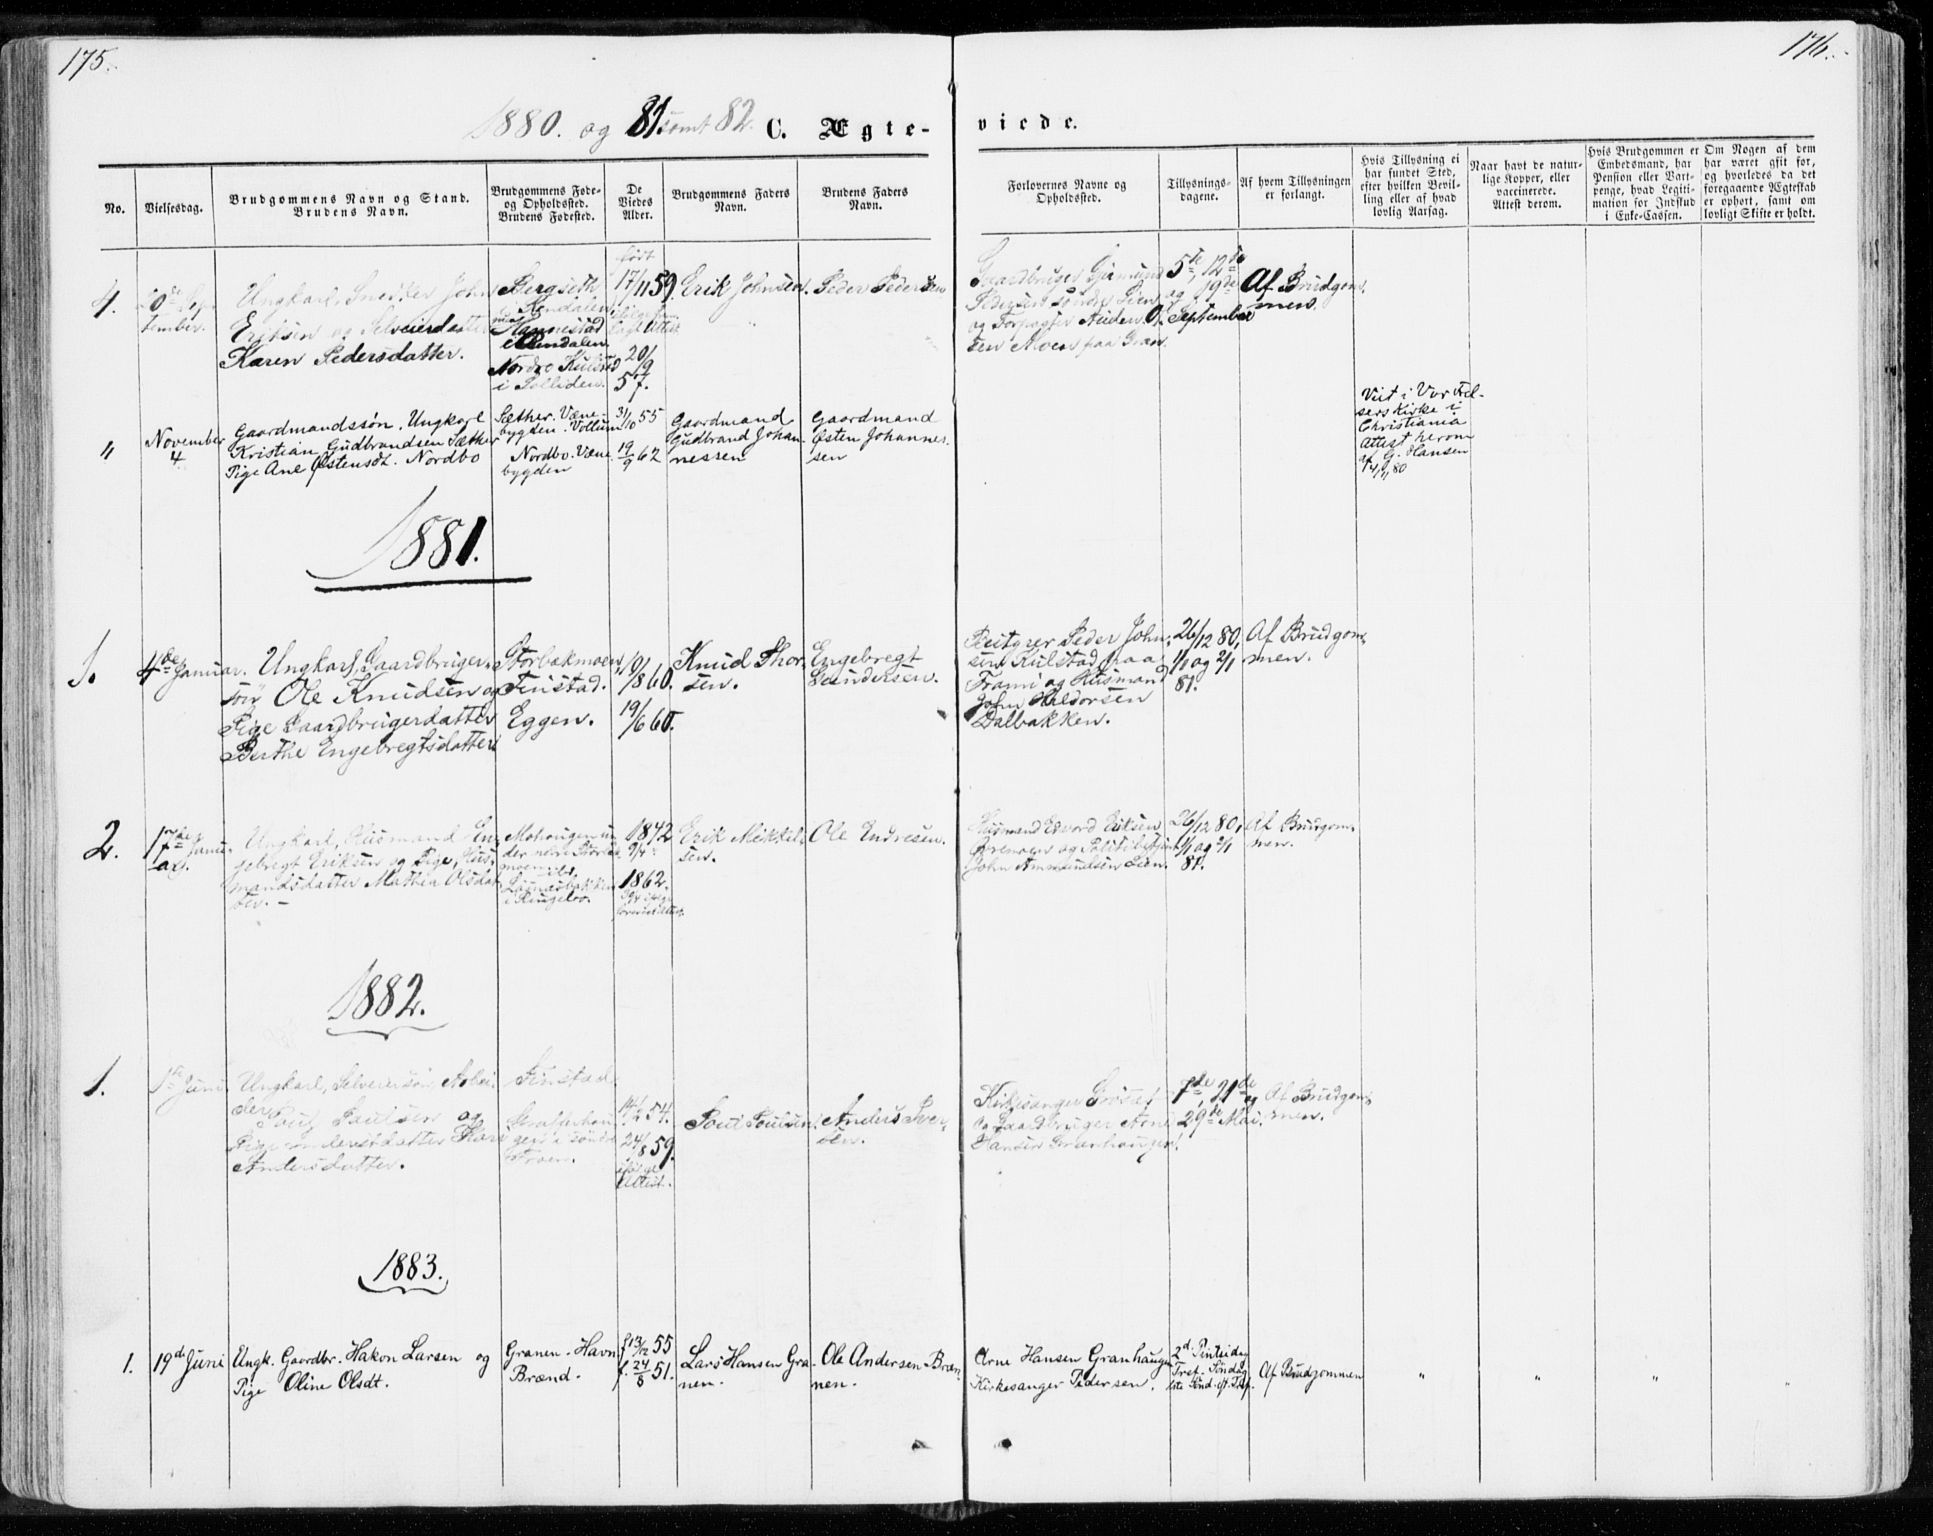 175.
176.
1880. og 81 samt 82. C. Ægte-
viede.
No.
Vielsesdag.
Brudgommens Navn og Stand.
Brudens Navn.
Brudgommens Føde-
og Opholdssted.
Brudens Fødested.
De
Viedes
Alder.
Brudgommens Faders
Navn.
Brudens Faders
Navn.
Forlovernes Navne og
Opholdssted.
Tillysnings-
dagene.
Af hvem Tillysningen
er forlangt.
Hvis Tillysning ei
har fundet Sted,
efter hvilken Bevil-
ling eller af hvad
lovlig Aarsag.
Naar havt de natur-
lige Kopper, eller
vaccinerede.
Attest derom.
Hvis Brudgommen er
Embedsmand, har
Pension eller Vart-
penge, hvad Legiti-
mation for Indskud
i Enke-Cassen.
Om Nogen af dem
har været gift før,
og hvorledes da det
foregaaende Ægteskab
er ophørt, samt om
lovligt Skifte er holdt.
4.
20de Sep-
tember.
Ungkarl, Snedker John
Eriksen og Selveierdatter
Karen Pedersdatter.
Bergseth
i Rendalen
i Rendalen.
Nordre
i Solliden.
født
17/11 59.
20/
19
57.
Erik Johnsen.
Peder Pedersen
Gaardbruger
Pedersen søndre Lien
og Forpagter Auden
5te, 12te
og 19de
September
Af Brudgom-
men.
"
November
4
Gaardmandssøn. Ungkarl
Kristian Gudbrandsen Sæther
Pige Ane Østensdt. Nordbo
Sæther. Væne-
bygden. Vollum
Nordbo. Væne-
bygden
31/10 55
19/9 62
Gaardmand
Gudbrand Johan-
nessen
Gaardmand
Østen Johannes-
sen
Viet i Vor Frel-
sers Kirke i
Christiania
Attest herom
af G. Hansen
4/11 80
1881.
1.
4de Januar.
Ungkarl, Gaardbruger-
søn Ole Knudsen og
Pige Gaardbrugerdatter
Berthe Engebregtsdatter.
Storbækmoen
Finstad.
Eggen.
19/8 60.
19/6 60.
Knud Thor-
sen.
Engebregt
Gundersen.
Bestyrer Peder John-
sen Kulstad paa
og Husmand
John Haldorsen
Dalbakken.
26/12 80,
1/1 og 2/1
81.
Af Brudgom-
men.
2.
17de Janu-
ar.
Ungkarl, Husmand En-
gebregt Eriksen og Pige, Hus-
mandsdatter Mathea Olsdat-
ter. –
i Ringebo.
1842
9/4
1862.
Erik Mikkel-
sen.
Ole Endresen.
Husmand Edvard Eriksen
John Ammundsen Lien.
26/12 80,
1/1 og 2/1
81.
Af Brudgom-
men.
1882.
1.
1te Juni
Ungkarl, Selveiersøn, Arbei-
der Poul Poulsen og
Pige Kari
Andersdatter.
Finstad.
14/2 54.
24/8 59.
ifølge
Attest.
Poul Poulsen.
Anders Iver-
sen.
Kirkesanger
og Gaardbruger Arne
Hansen Granhaugen.
7de, 21de og
29de Mai.
Af Brudgom-
men.
1883.
1.
19de Juni
Ungk. Gaardbr. Hakon Larsen og
Pige Oline Olsdt.
Granen. Havn
Brænd.
f. 13/12 55
f. 24/8 51.
Lars Hansen Gra-
nen.
Ole Andersen Bræn-
nen.
Arne Hansen Granhaugen
Kirkesanger Pedersen.
2d. Pintsedag
Tref. Søndag
1ste Sønd. eft. Tref.
Af Brudgommen
"
"
"
"